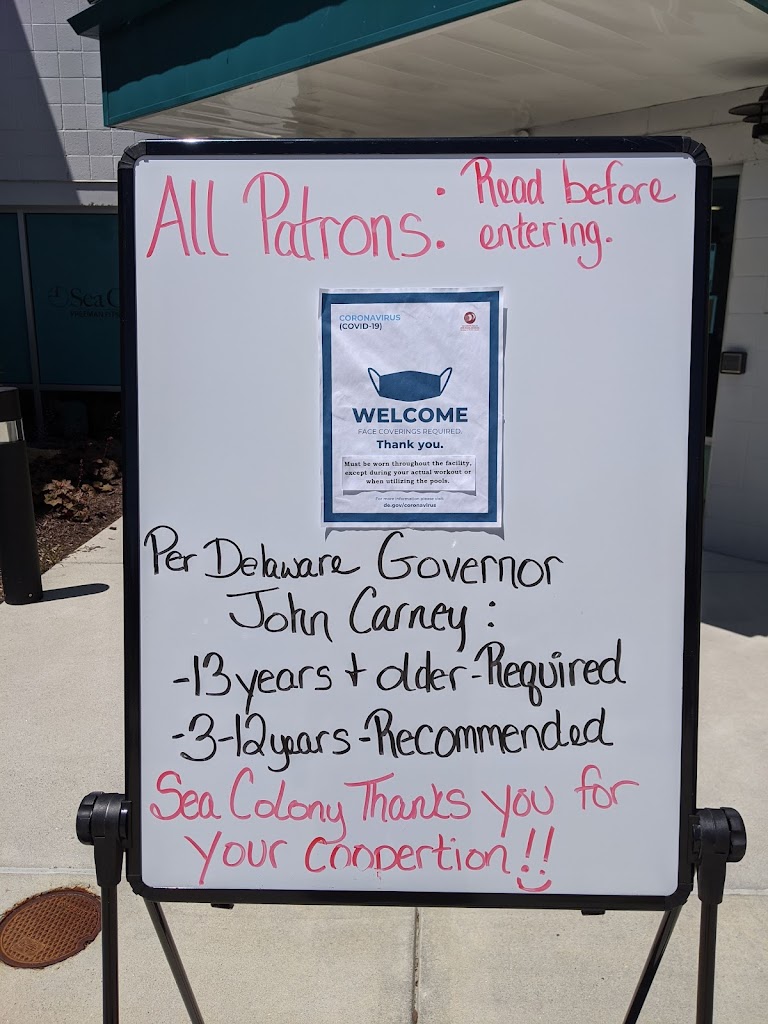 All Patrons: Read before
entering.
CORONAVIRUS
(COVID-19)
WELCOME
FACE COVERINGS REQUIRED.
Thank you.
Must be worn throughout the facility,
except during your actual workout or
when utilizing the pools.
For more information please visit:
de.gov/coronavirus
Per Delaware Governor
John Carney:
-13 years + older-Required
-3-12 years-Recommended
Sea Colony Thanks you for
your coopertion!!
Sea C